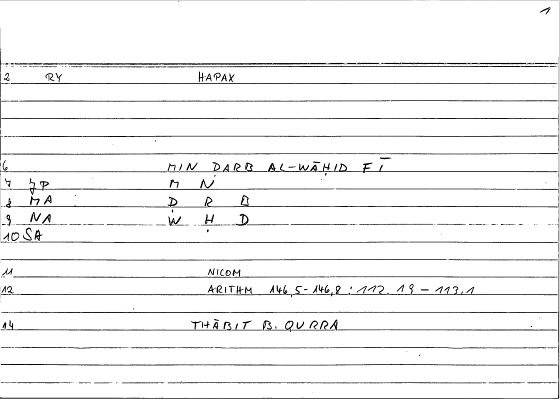 1
2 RY HAPAX
6 MIN DARB AL-WĀḤID FĪ
7 JP M N
8 MA D R B
9 NA W Ḥ D
10 SA
11 NICOM
12 ARITHM 146,5-146,8 : 112.19-113,1
14 THĀBIT B. QURRA